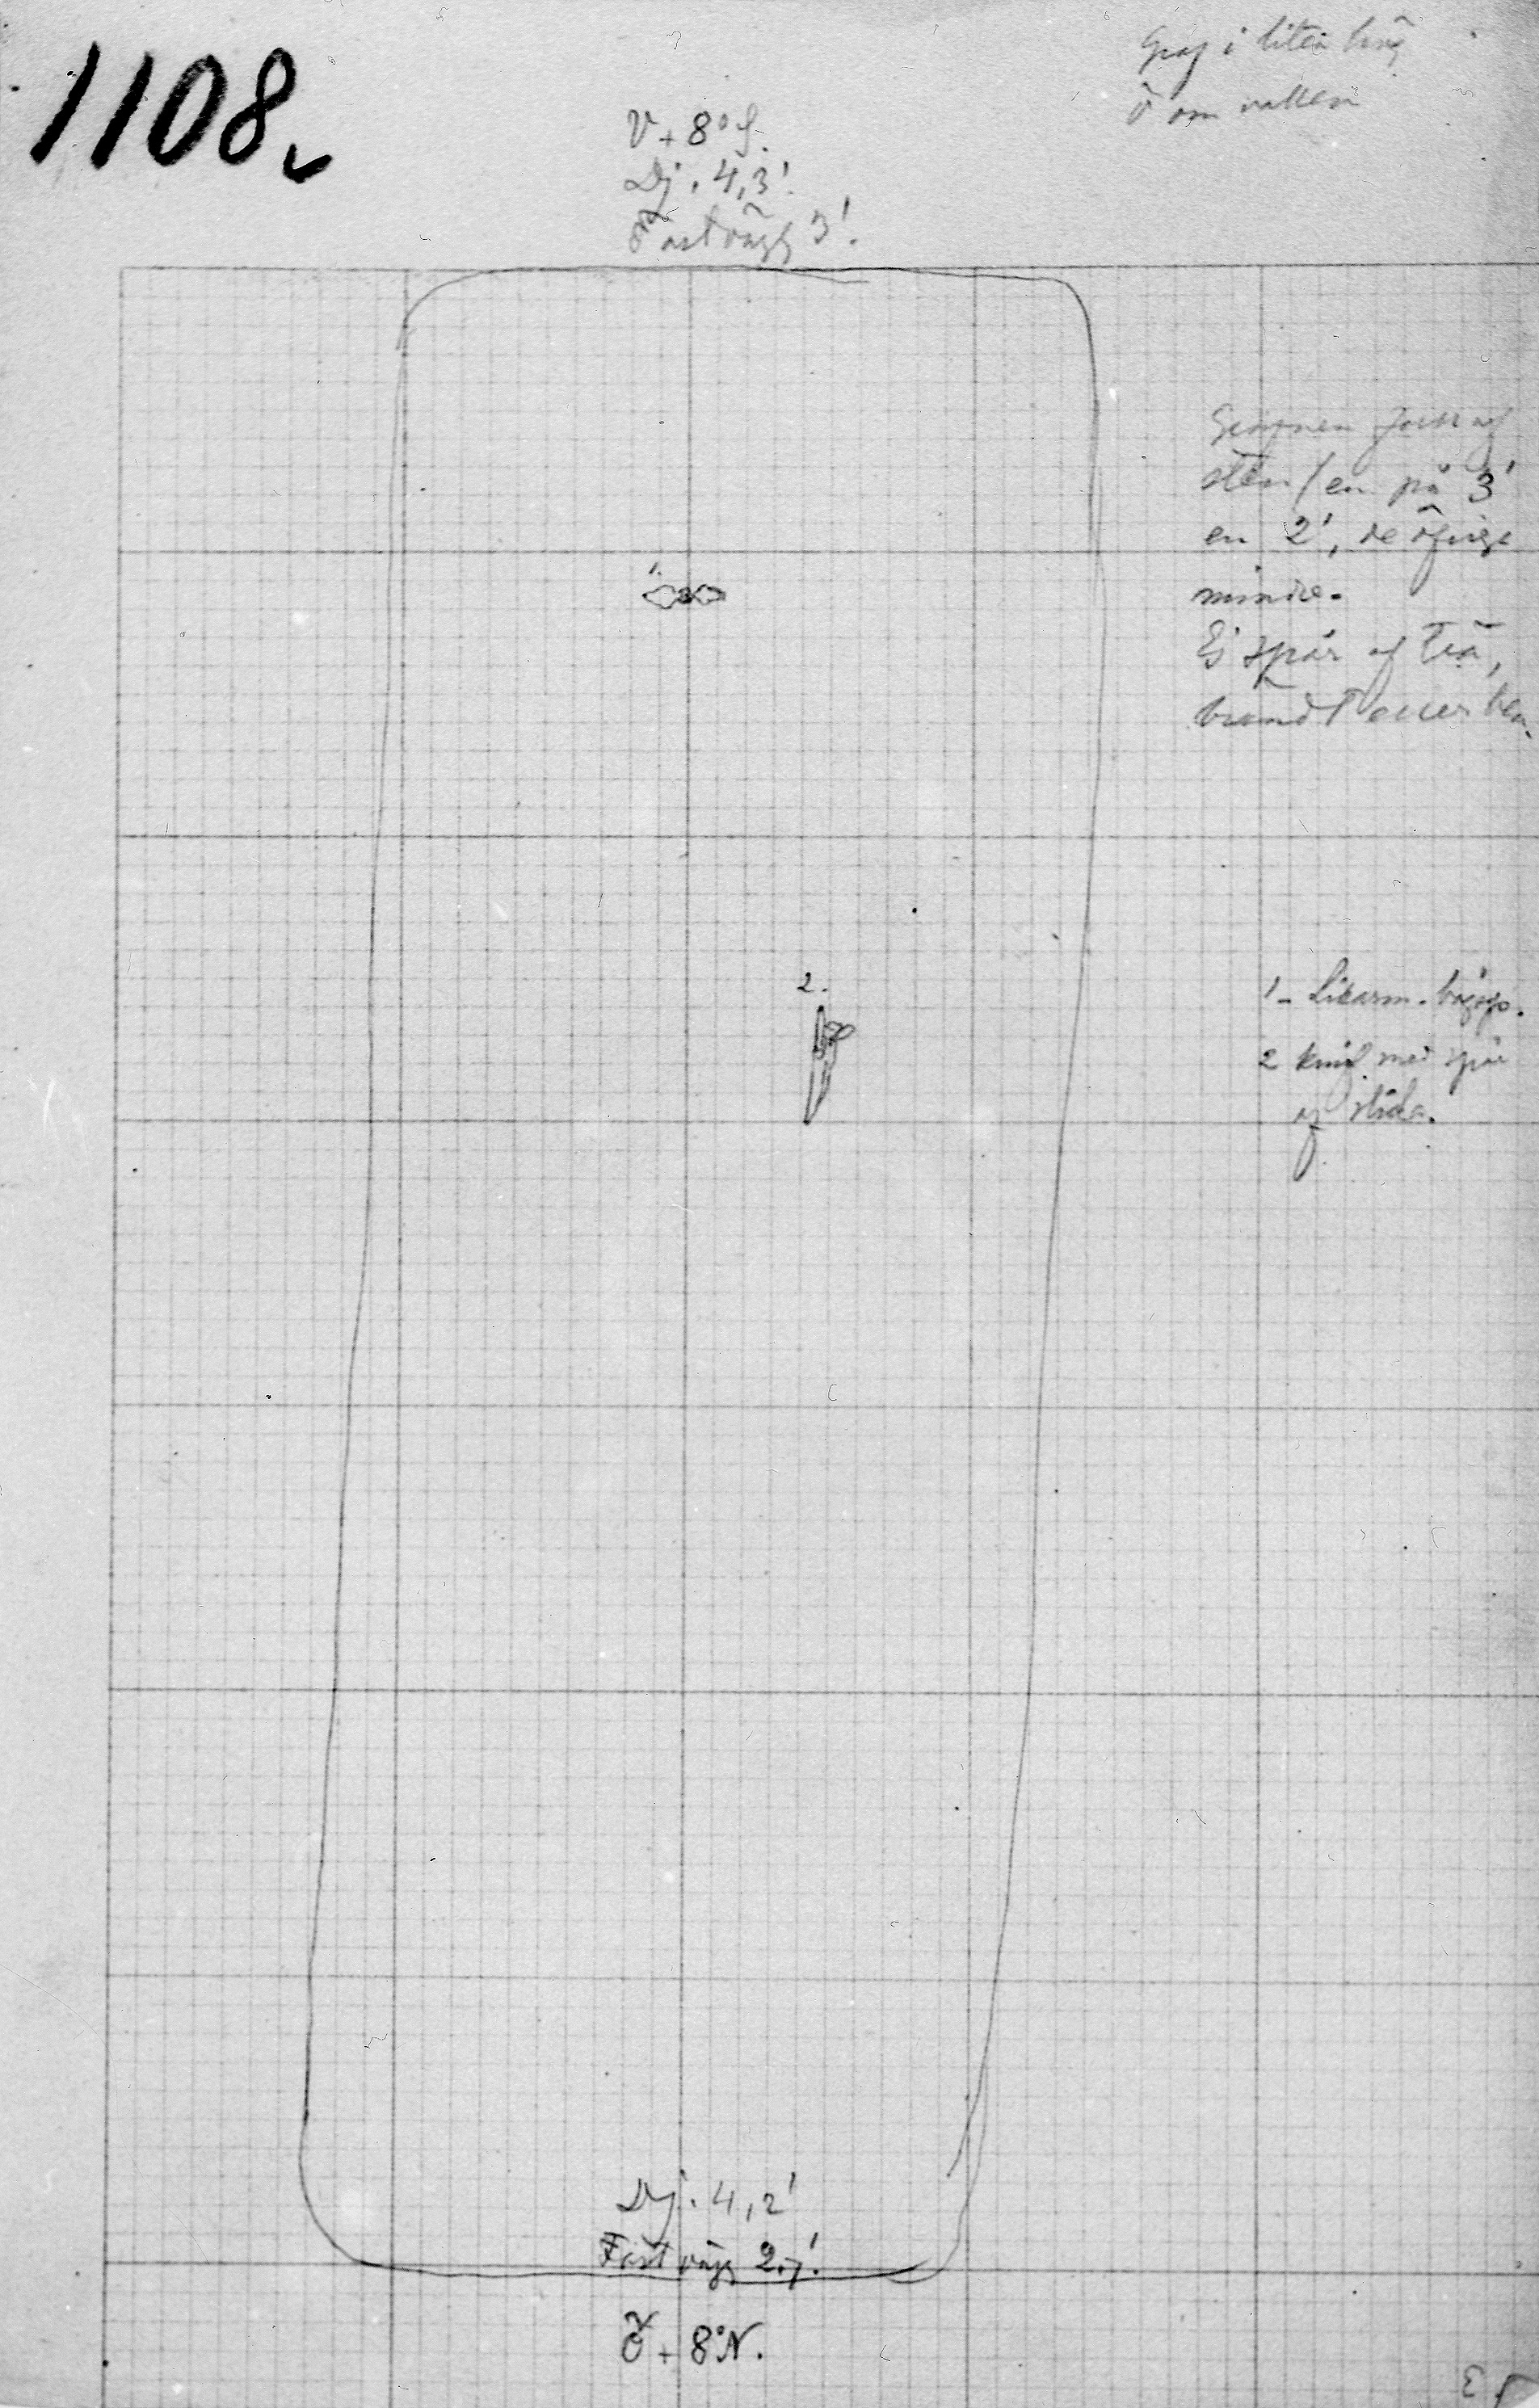 1108.
Graf i liten hög
Ö om vallen
V + 8° S.
Dj. 4,3'.
Fast vägg 3'.
Grafven full af
sten / en på 3'
en 2', de öfriga
mindre.
Ej spår af trä,
brändt eller ben.
1.
2.
1 - Likarm. bågsp.
2 knif med spår
af slida.
Dj. 4,2'
Fast vägg 2,7'.
Ö + 8° N.